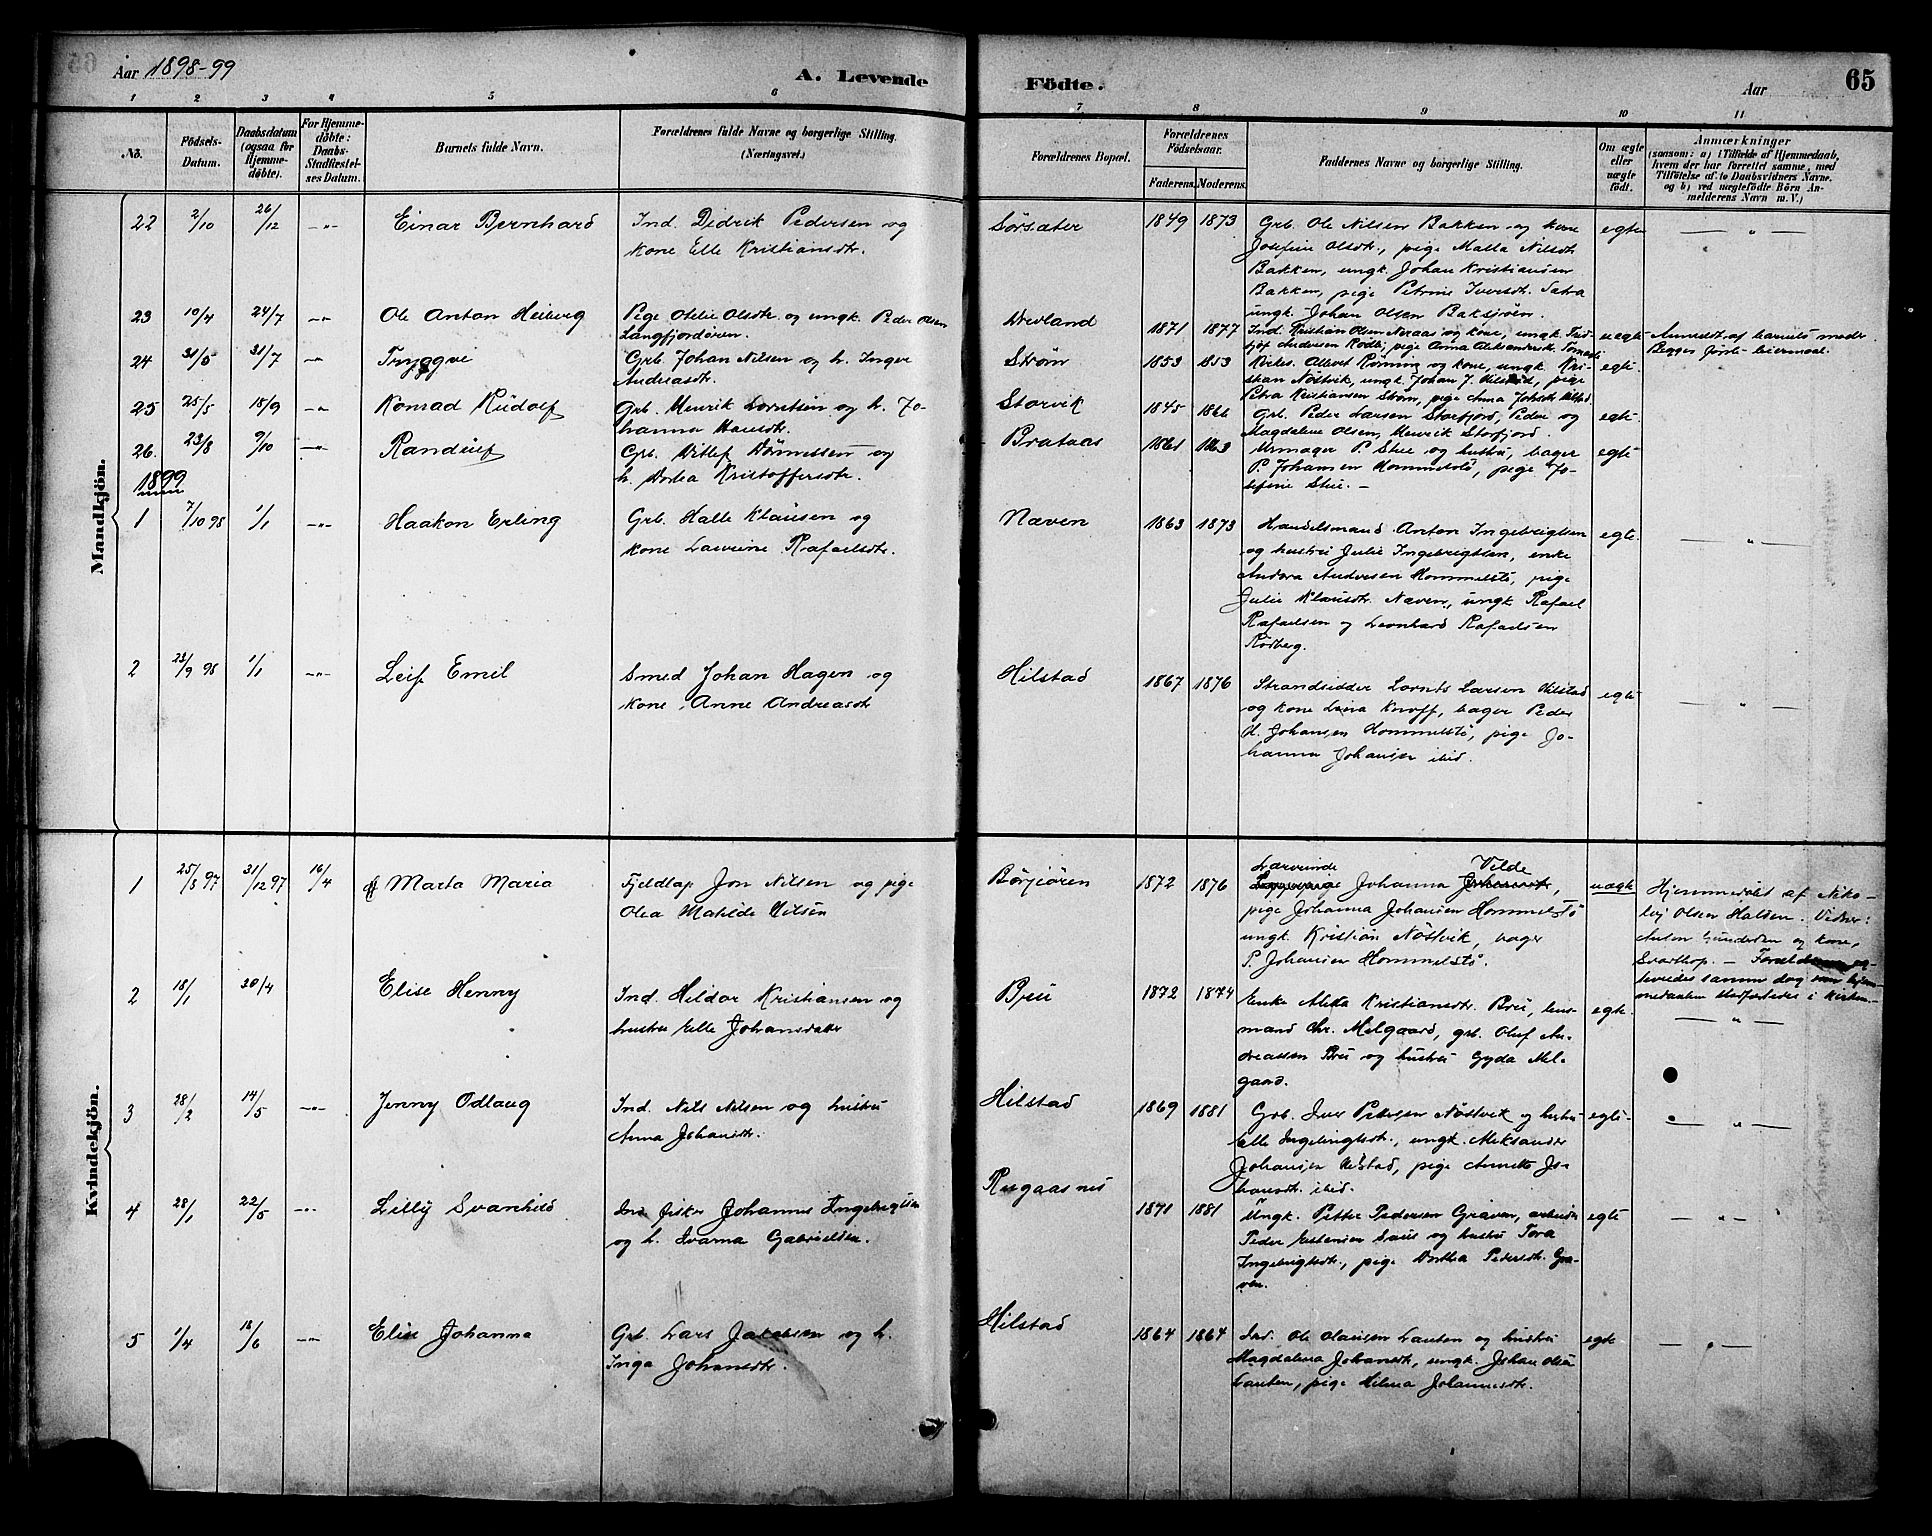 Aar 1898-99
A. Levende Födte.
Aar
65
1 2 3 4 5 6 7 8 9 10 11
No.
Födsels-Datum.
Daabsdatum (ogsaa for Hjemme-döbte).
For Hjemme-döbte: Daabs-Stadfæstel-ses Datum.
Barnets fulde Navn.
Forældrenes fulde Navne og borgerlige Stilling. (Næringsvei.)
Forældrenes Bopæl.
Forældrenes Födselsaar.
Faderens. Moderens.
Faddernes Navne og borgerlige Stilling.
Om ægte eller uægte födt.
Anmærkninger
(saasom: a) i Tilfælde af Hjemmedaab,
hvem der har forrettet samme, med
Tilföielse af to Daabsvidners Navne.
og b) ved uægtefödte Börn An-
melderens Navn m. V.)
Mandkjön.
22 2/10 26/12 -"- Einar Bernhard
Ind. Didrik Pedersen og
kone Elle Kristiansdtr.
Sörsæter 1849 1873
Grb. Ole Nilsen Bakken og kone
Josefine Olsdtr., pige Malla Nilsdtr
Bakken, ungk. Johan Kristiansen
Bakken, pige Petrine Iversdtr. Sætra
ungk. Johan Olsen Baksjöen.
egte — " —
23 10/4 24/7 -"- Ole Anton Heiberg
Pige Otelie Olsdtr. og ungk. Peder Olsen
Langfjordören.
Drevland 1871 1877
Ind. Kristian Olsen Neraas og kone, ungk. Frid-
tjof Andersen Rodli, pige Anna Aleksandersdtr.
uegte
Anmeldt af barnets moder.
Begges förste leiermaal.
24 31/5 31/7 -"- Tryggve
Grb. Johan Nilsen og h. Inger
Andreasdtr.
Ström 1853 1853
Kirkes. Albert Rönning og kone, ungk. Kri-
stian Nöstvik, ungk. Johan J. Hilstad, pige
Petra Kristiansen Ström, pige Anna Johsdtr Hilstad
egte
25 25/5 18/9 -"- Konrad Rudolf
Grb. Henrik Lorntsen og h. Jo-
hanna Hansdtr.
Storvik 1845 1866
Grb. Peder Larsen Storfjord, Peder og
Magdalene Olsen, Henrik Storfjord.
egte
26. 23/8 9/10 -"- Randulf
Grb. Ditlef Dönnessen og
h. Dorthea Kristoffersdtr.
Brataas 1861 1863
Urmager P. Stue og hustru, bager
P. Johansen Hommelstö, pige Jo-
sefine Stue. —
egte
1899
1 7/10 98 1/1 -"- Haakon Erling
Grb. Halle Klausen og
kone Laurine Rafaelsdtr.
Næven 1863 1873
Handelsmand Anton Ingebrigtsen
og hustru Julie Ingebrigtsen, enke
Andrea Andersen Hommelstö, pige
Julie Klausdtr. Næven, ungk Rafael
Rafaelsen og Leonhard Rafaelsen
Rödberg.
egte. — " —
2 23/9 98 1/1 -"- Leif Emil
Smed Johan Hagen og
kone Anne Andreasdtr
Hilstad 1867 1876
Strandsidder Lornts Larsen Hilstad
og kone Lina Knoff, bager Peder
H. Johansen Hommelstö, pige Jo-
hanna Johansen ibid.
egte — " —
Kvindekjön.
1 25/3 97 31/12 97 16/4 Marta Maria
Fjeldlap Jon Nilsen og pige
Olea Matilde Nilsen
Börjeören 1872 1876
Lærerinde Johanna Vilde,
pige Johanna Johansen Hommelstö
ungk. Kristian Nöstvik, bager
P. Johansen Hommelstö.
uægte
Hjemmedöbt af Niko-
laj Olsen Halsen. Vidner:
Anton Gundersen og kone,
Svarthop. —
2 18/1 30/4 Elise Henny
Ind. Hildor Kristiansen og
hustru Elle Johansdatter
Breu 1872 1874
Enke Aleta Kristiansdtr. Breu, lens-
mand Chr. Melgaard, grb. Oluf An-
dreassen Breu og hustru Gyda Mel-
gaard.
egte. — " —
3 28/2 14/5 -"- Jenny Odlaug
Ind. Nils Nilsen og hustru
Anna Johansdtr.
Hilstad 1869 1881
Grb. Iver Petersen Nöstvik og hustru
Elle Ingebrigtsdtr., ungk. Aleksander
Johansen Hilstad, pige Annette Jo-
hansdtr. ibid.
egte — " —
4 28/1 22/5 -"- Lilly Svanhild
Ind. fisker Johannes Ingebrigtsen
og h. Ivarna Gabrielsen.
Rugaasnes 1871 1881
Ungk. Petter Pedersen Graven, arbeider
Peder Estensen Saus og hustru Tora
Ingebrigtsdtr., pige Dorthea Pedersdtr. Gra-
ven.
egte — " —
5 1/4 18/6 -"- Elise Johanna
Grb. Lars Jakobsen og h.
Inga Johansdtr.
Hilstad 1864 1864
Ind. Ole Olausen Lauten og hustru
Magdalena Johansdtr, ungk. Johan Olsen
Lauten, pige Hilma Johannesdtr.
egte — " —